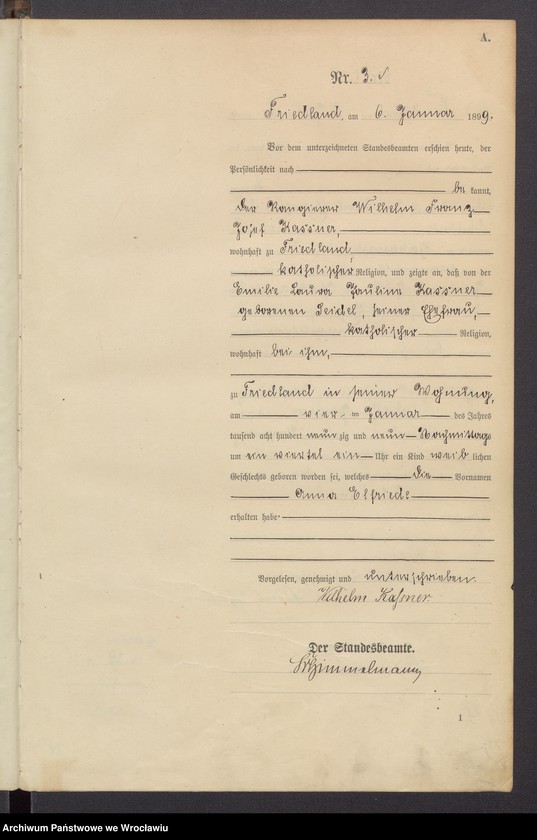 A.
Nr. 3.
Friedland, am 6. Januar 1899.
Vor dem unterzeichneten Standesbeamten erschien heute, der
Persönlichkeit nach
be kannt,
der Rangierer Wilhelm Franz
Josef Kassner,
wohnhaft zu Friedland,
katholischer Religion, und zeigte an, daß von der
Emilie Laura Pauline Kassner
geborenen Seidel, seiner Ehefrau,
katholischer Religion,
wohnhaft bei ihm,
zu Friedland in seiner Wohnung,
am vier ten Januar des Jahres
tausend acht hundert neun zig und neun Nachmittags
um ein viertel ein Uhr ein Kind weib lichen
Geschlechts geboren worden sei, welches die Vornamen
Anna Elfriede
erhalten habe
Vorgelesen, genehmigt und unterschrieben.
Wilhelm Kaßner
Der Standesbeamte.
1
Archiwum Państwowe we Wrocławiu